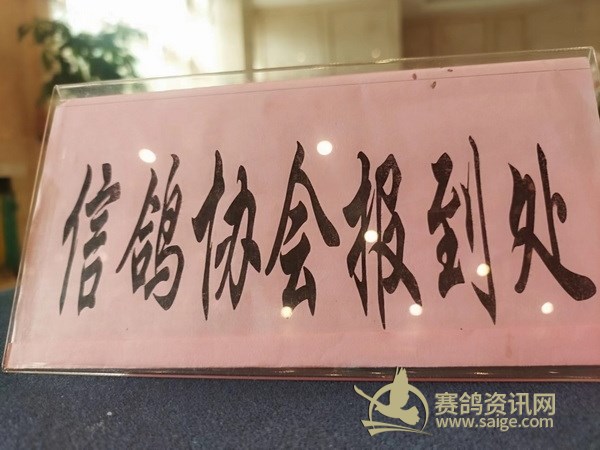 信鸽协会报到处
赛鸽资讯网
www.saige.com